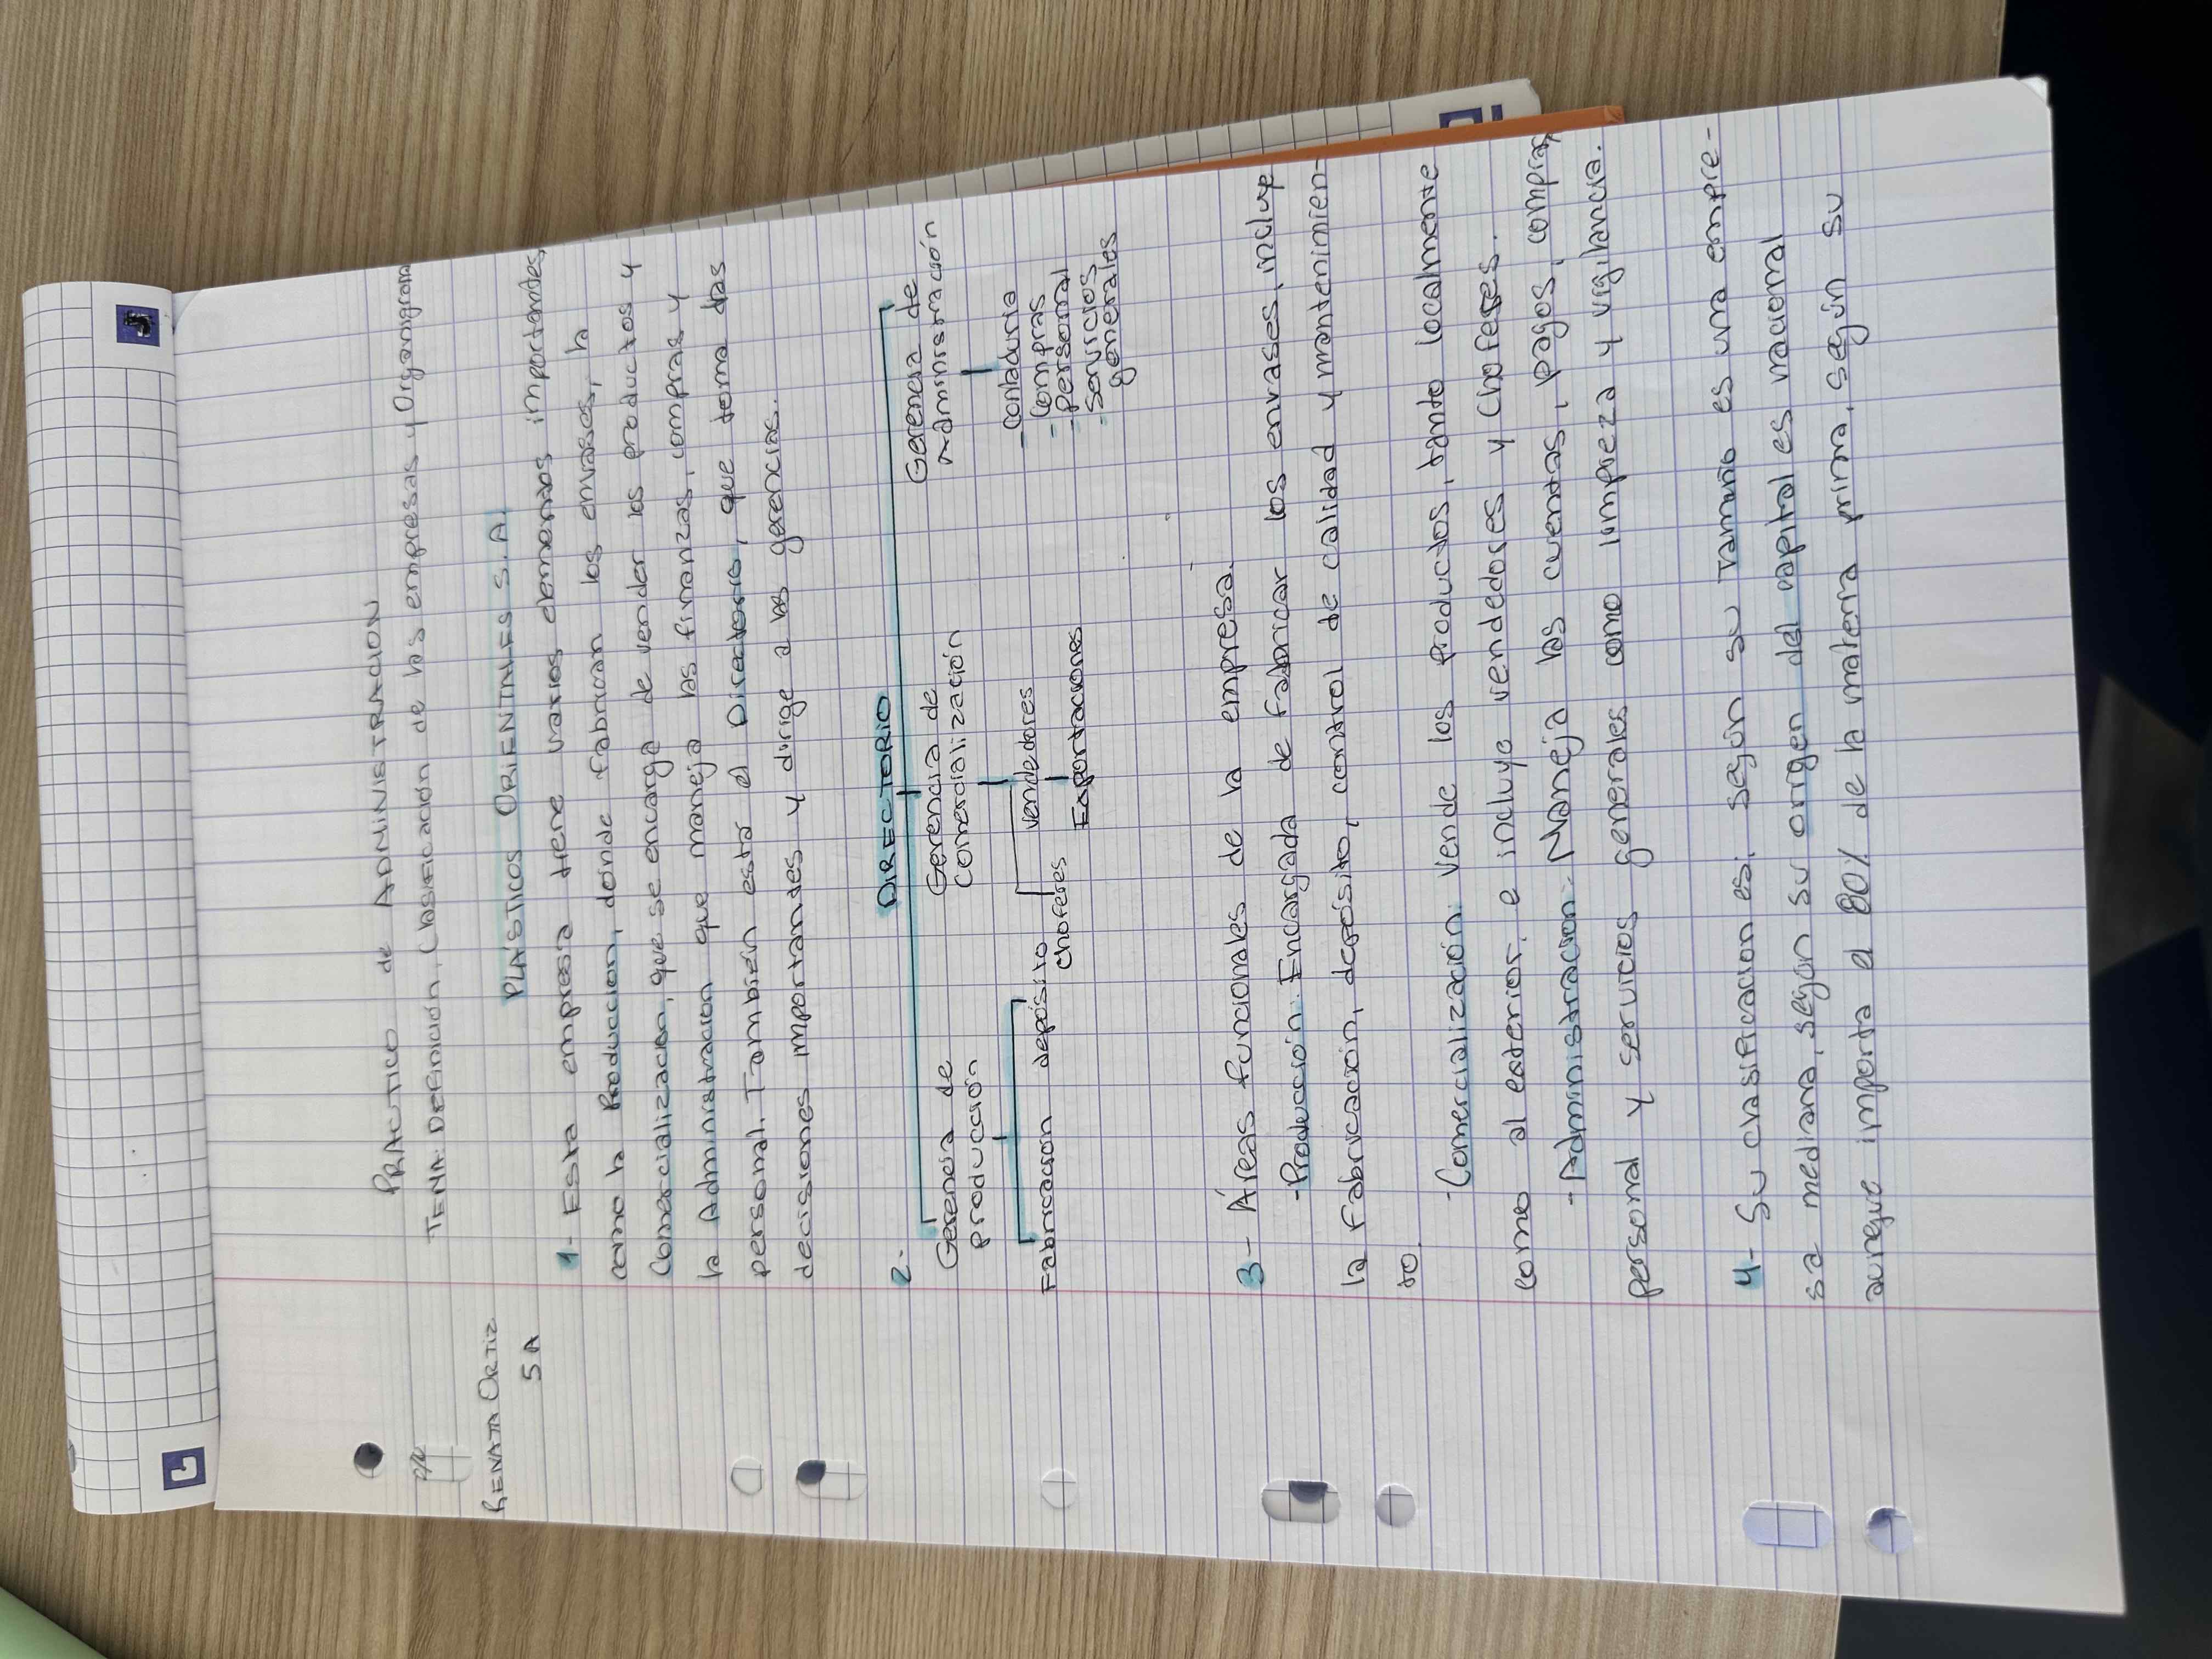 PRACTICO de ADMINISTRACION
TEMA: DEFinición, Clasificación de las empresas y Organigrama
RENATA ORTIZ
5A
PLASTICOS ORIENTALES S.A.
1- Esta empresa tiene varios elementos importantes,
como la Produccion, donde fabrican los envases, la
Comercializacion, que se encarga de vender los productos y
la Administracion que maneja las finanzas, compras y
personal. Tambien esta el Directorio, que toma las
decisiones importantes y dirige a las gerencias.
2-
DIRECTORIO
Gerencia de producción
Gerencia de Comercialización
Gerencia de Administración
Fabricacion depósito
choferes
vendedores
Exportaciones
- contaduria
- compras
- personal
- servicios generales
3- Áreas funcionales de la empresa.
- Producción: Encargada de fabricar los envases, incluye
la Fabricación, depósito, control de calidad y mantenimien-
to.
- Comercialización: vende los productos, tanto localmente
como al exterior, e incluye vendedores y choferes.
- Administracion: Maneja las cuentas, pagos, compras,
personal y servicios generales como limpieza y vigilancia.
4- Su clasificacion es: según su tamaño es una empre-
sa mediana, según su origen del capital es nacional
aunque importa el 80% de la materia prima, según su